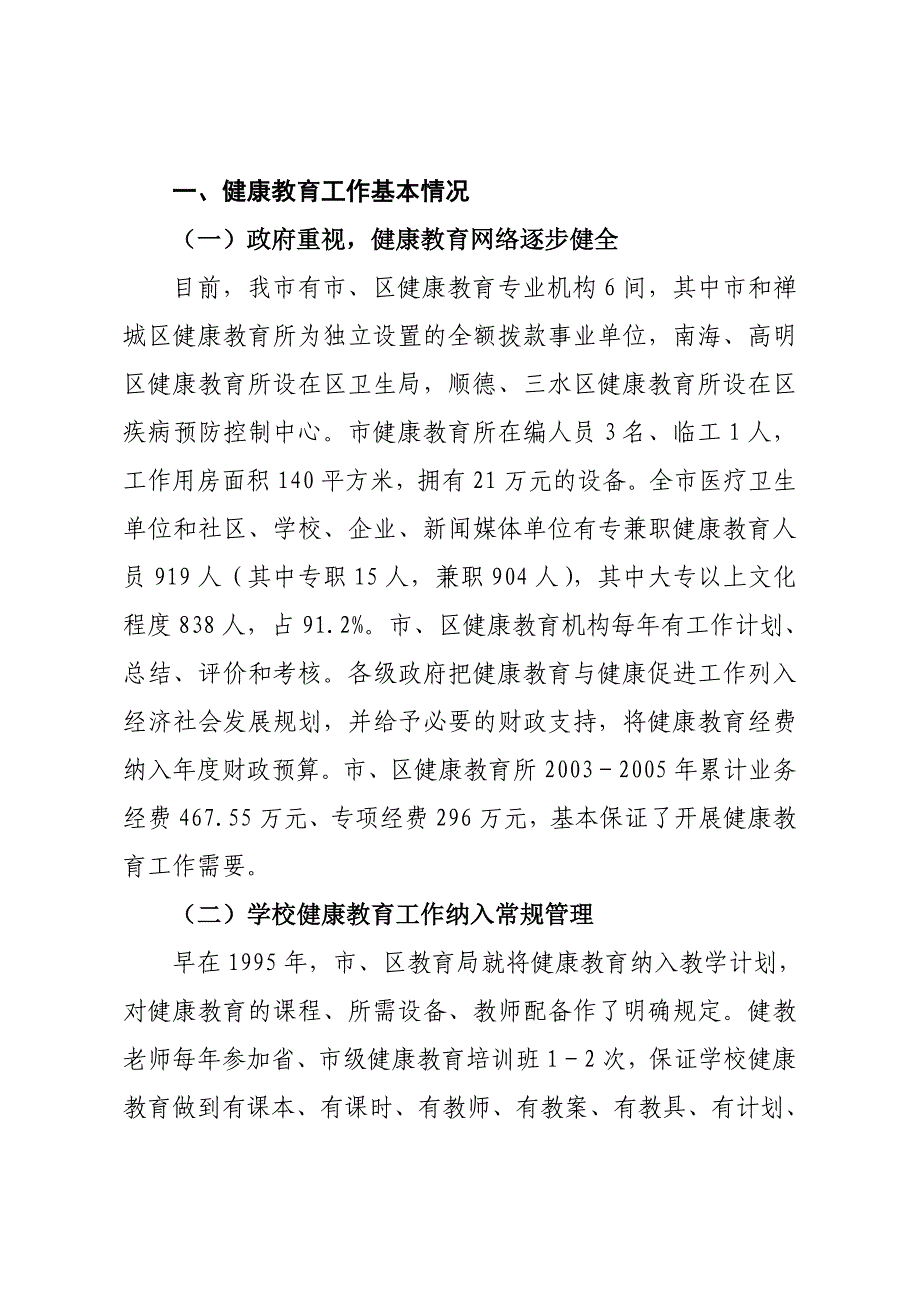 一、健康教育工作基本情况
（一）政府重视，健康教育网络逐步健全
目前，我市有市、区健康教育专业机构 6 间，其中市和禅
城区健康教育所为独立设置的全额拨款事业单位，南海、高明
区健康教育所设在区卫生局，顺德、三水区健康教育所设在区
疾病预防控制中心。市健康教育所在编人员 3 名、临工 1 人，
工作用房面积 140 平方米，拥有 21 万元的设备。全市医疗卫生
单位和社区、学校、企业、新闻媒体单位有专兼职健康教育人
员 919 人（其中专职 15 人，兼职 904 人），其中大专以上文化
程度 838 人，占 91.2%。市、区健康教育机构每年有工作计划、
总结、评价和考核。各级政府把健康教育与健康促进工作列入
经济社会发展规划，并给予必要的财政支持，将健康教育经费
纳入年度财政预算。市、区健康教育所 2003－2005 年累计业务
经费 467.55 万元、专项经费 296 万元，基本保证了开展健康教
育工作需要。
（二）学校健康教育工作纳入常规管理
早在 1995 年，市、区教育局就将健康教育纳入教学计划，
对健康教育的课程、所需设备、教师配备作了明确规定。健教
老师每年参加省、市级健康教育培训班 1－2 次，保证学校健康
教育做到有课本、有课时、有教师、有教案、有教具、有计划、